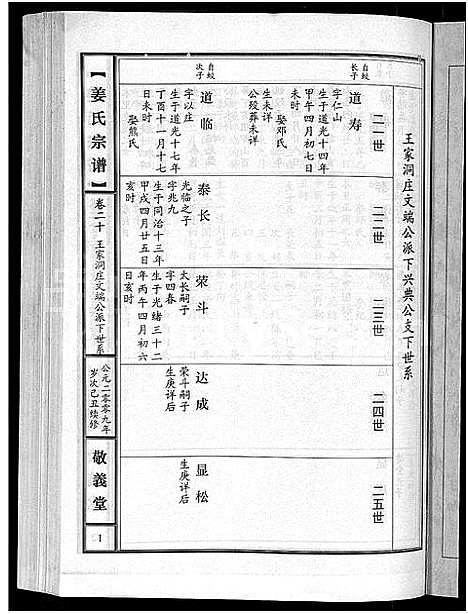 王家洞庄文端公派下兴典公支下世系
二一世
自蛟
长子
道寿
字仁山
生于道光十四年
甲午四月初七日
未时
娶邓氏
生未详
公殁葬未详
自蛟
次子
道临
字以庄
生于道光十七年
丁酉十一月十七
日未时
娶熊氏
二二世
泰长
光临之子
字兆九
生于同治十三年
甲戌四月廿五日
亥时
二三世
荣斗
太长嗣子
字四春
生于光绪三十二
年丙午四月初六
日亥时
二四世
达成
荣斗嗣子
生庚详后
二五世
显松
生庚详后
【姜氏宗谱】
卷二十
王家洞庄文端公派下世系
公元二零零九年
岁次己丑续修
敬義堂
1